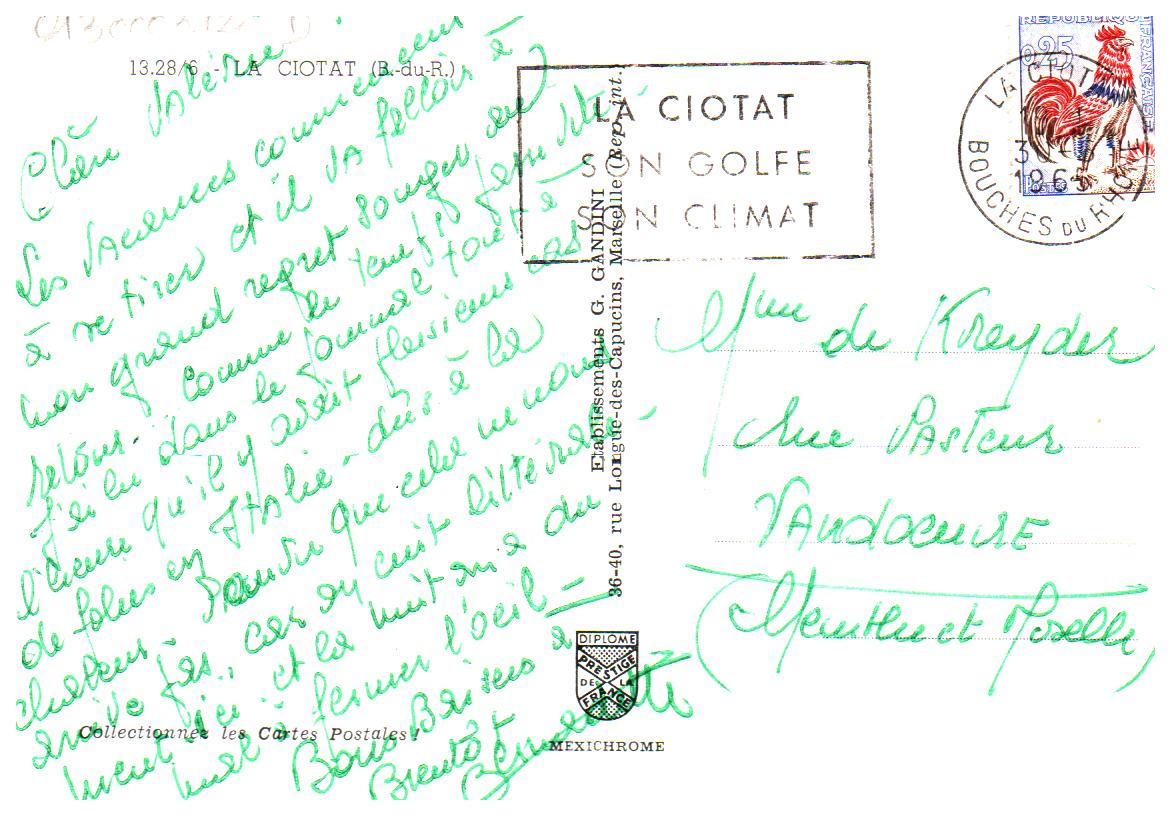 13.28/6 - LA CIOTAT (B.-du-R.)
Les VAcances commencent
à se tirer et il VA falloir à
mon grand regret songer au
retour. comme le temps
J'ai lu dans le journal tout à
l'heure qu'il y avait plusieurs cas
de folies en ITALie - dûs à la
chaleur. Pourvu que cela ne nous
arrive pas, car on cuit littérale-
ment ici et la nuit on a du
mal à fermer l'oeil -
Bons Baisers à
Bientôt
Collectionnez les Cartes Postales !
Etablissements G. GANDINI
36-40, rue Longue-des-Capucins, Marseille (Rep. int.)
DIPLOME
PRESTIGE
DE LA
FRANCE
MEXICHROME
LA CIOTAT
SON GOLFE
SON CLIMAT
REPUBLIQUE FRANÇAISE
0,25
LA CIOTAT
1963
BOUCHES DU RHONE
Mme de Kreyder
Rue PASTEUR
VANDOEUVRE
(Meurthe et Moselle)